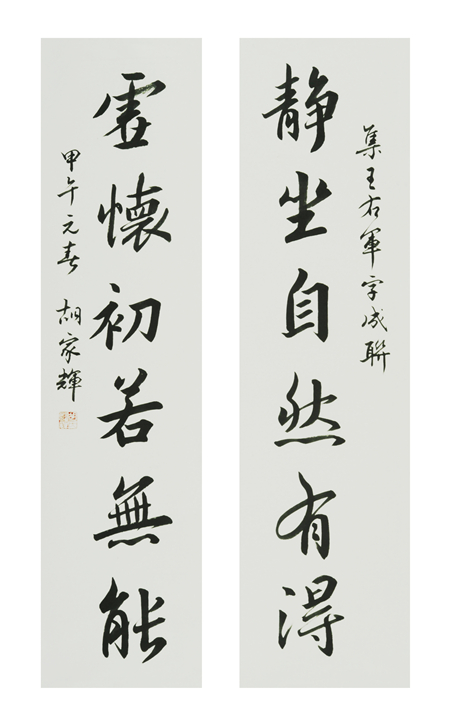 集王右軍字成聯
静坐自然有得
虚懷初若無能
甲午元春 胡家輝